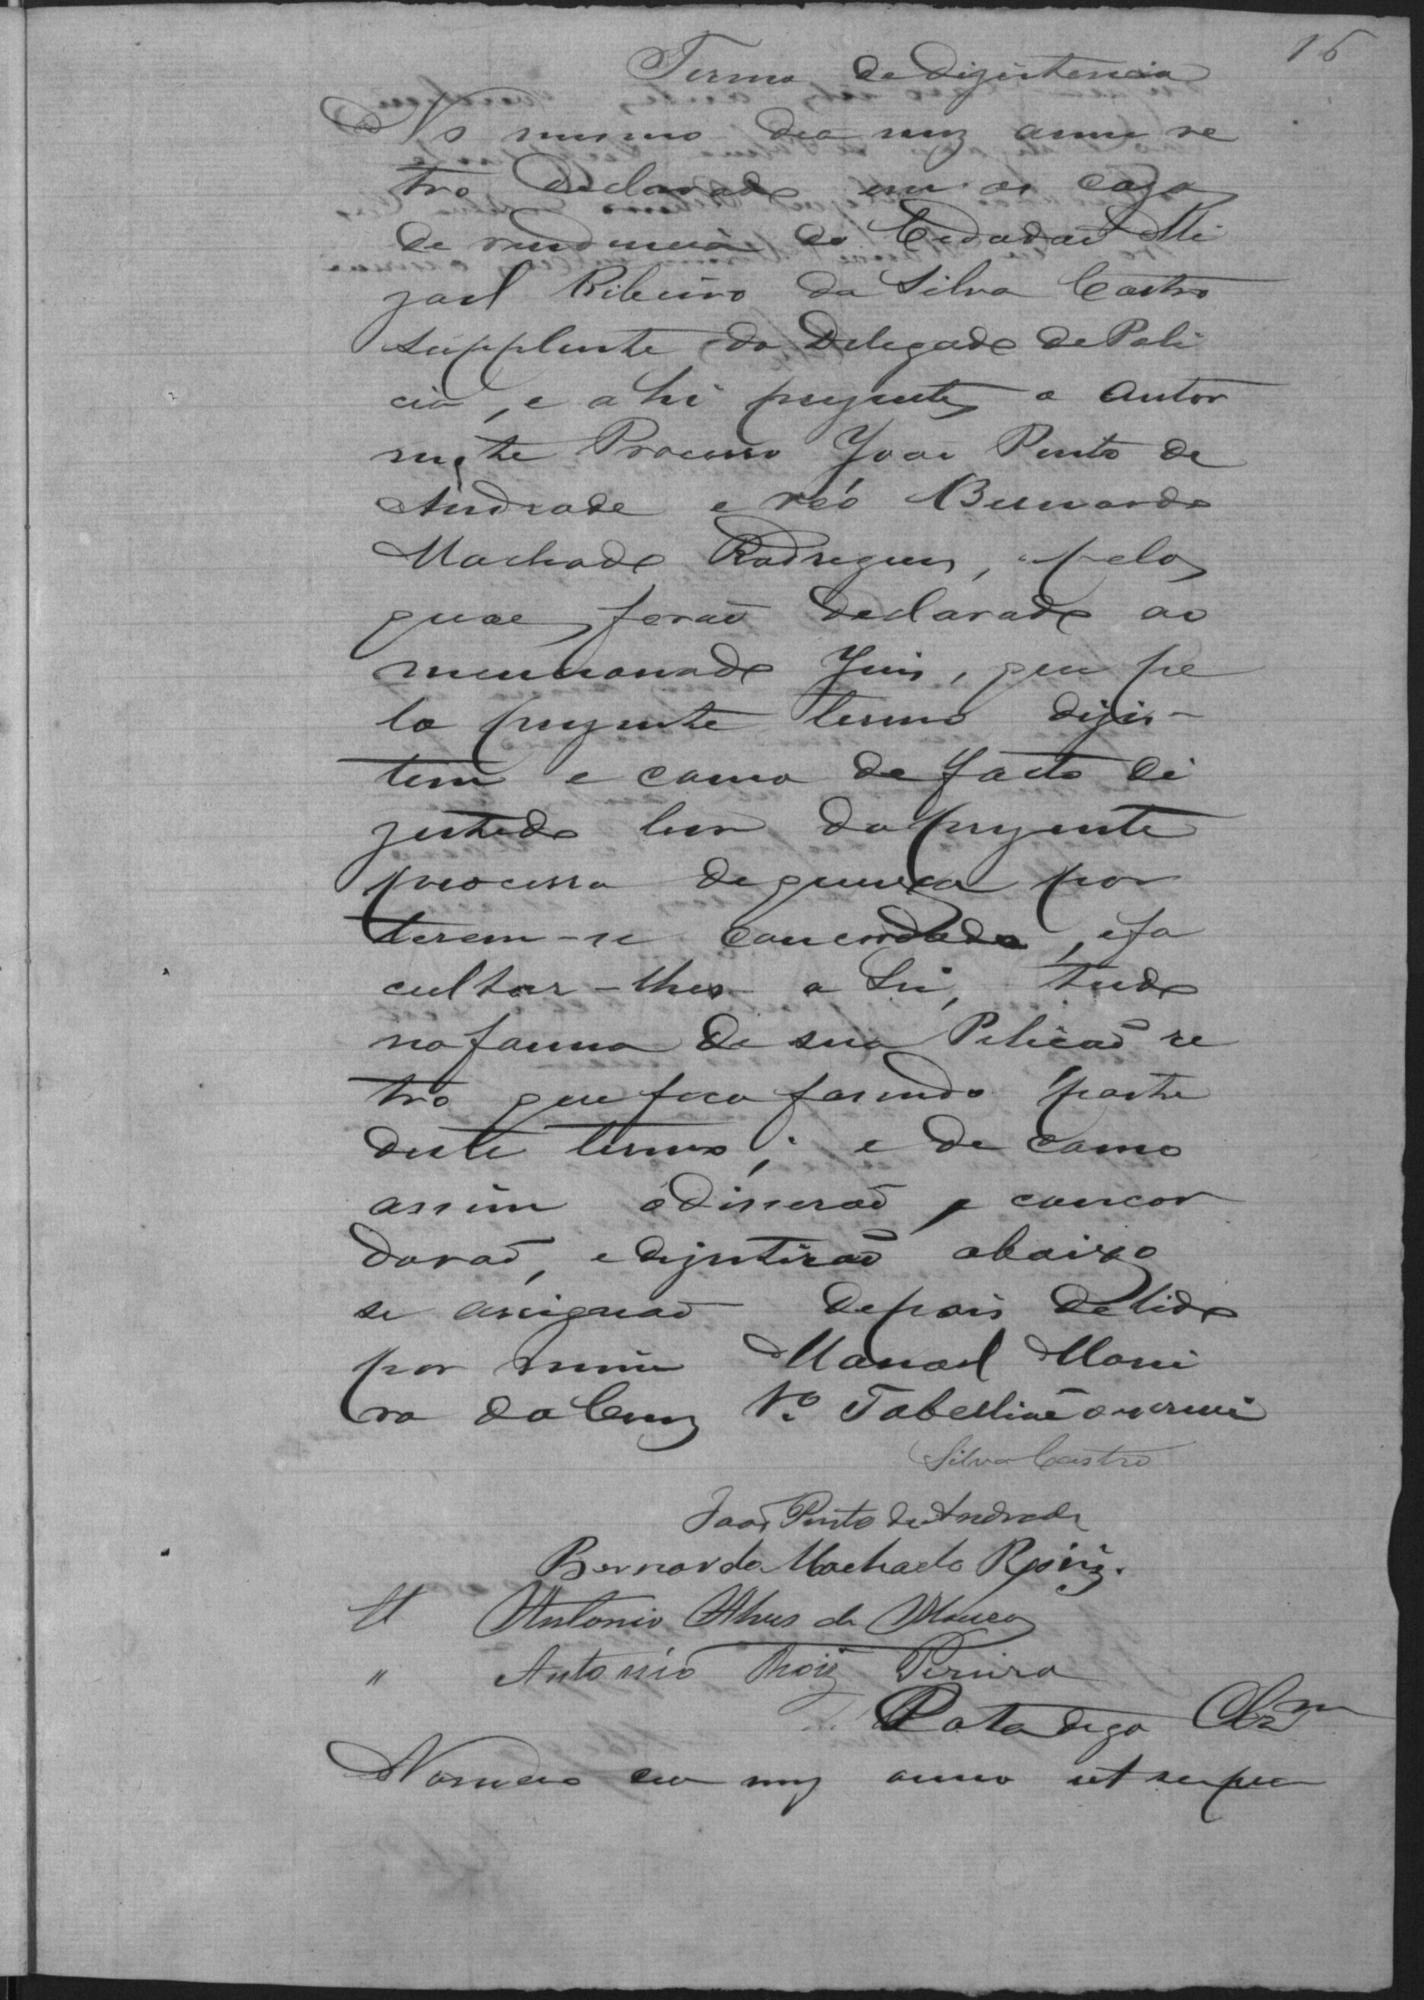 16
Termo de dizistencia
No mesmo dia mez anno re
tro declarado em as caza
de rezidencia do Cidadão Mi
zael Ribeiro da Silva Castro
supplente do Delegado de Poli
cia, e ahi prezentes o autor
neste Processo João Pinto de
Andrade e réo Bernardo
Machado Rodrigues, pelos
quaes forão declarado ao
mencionado Juis, que pe
lo prezente termo dizis-
tem e como de facto di
zistido tem do prezente
processo de queixa por
terem-se concordado, e fa
cultar-lhes a Lei, tudo
na forma de sua Petição re
tro que fica fasendo parte
deste termo; e de como
assim o disserão e concor
darão, e dizistirão abaixo
se assignão depois de lido
por mim Manoel Morei
ra da Cruz 1º Tabellião o escrevi
Silva Castro
João Pinto de Andrade
Bernardo Machado Roiz.
Antonio Alves de
" Antonio Roiz Pereira
Data digo
No mesmo dia mez anno ut supra